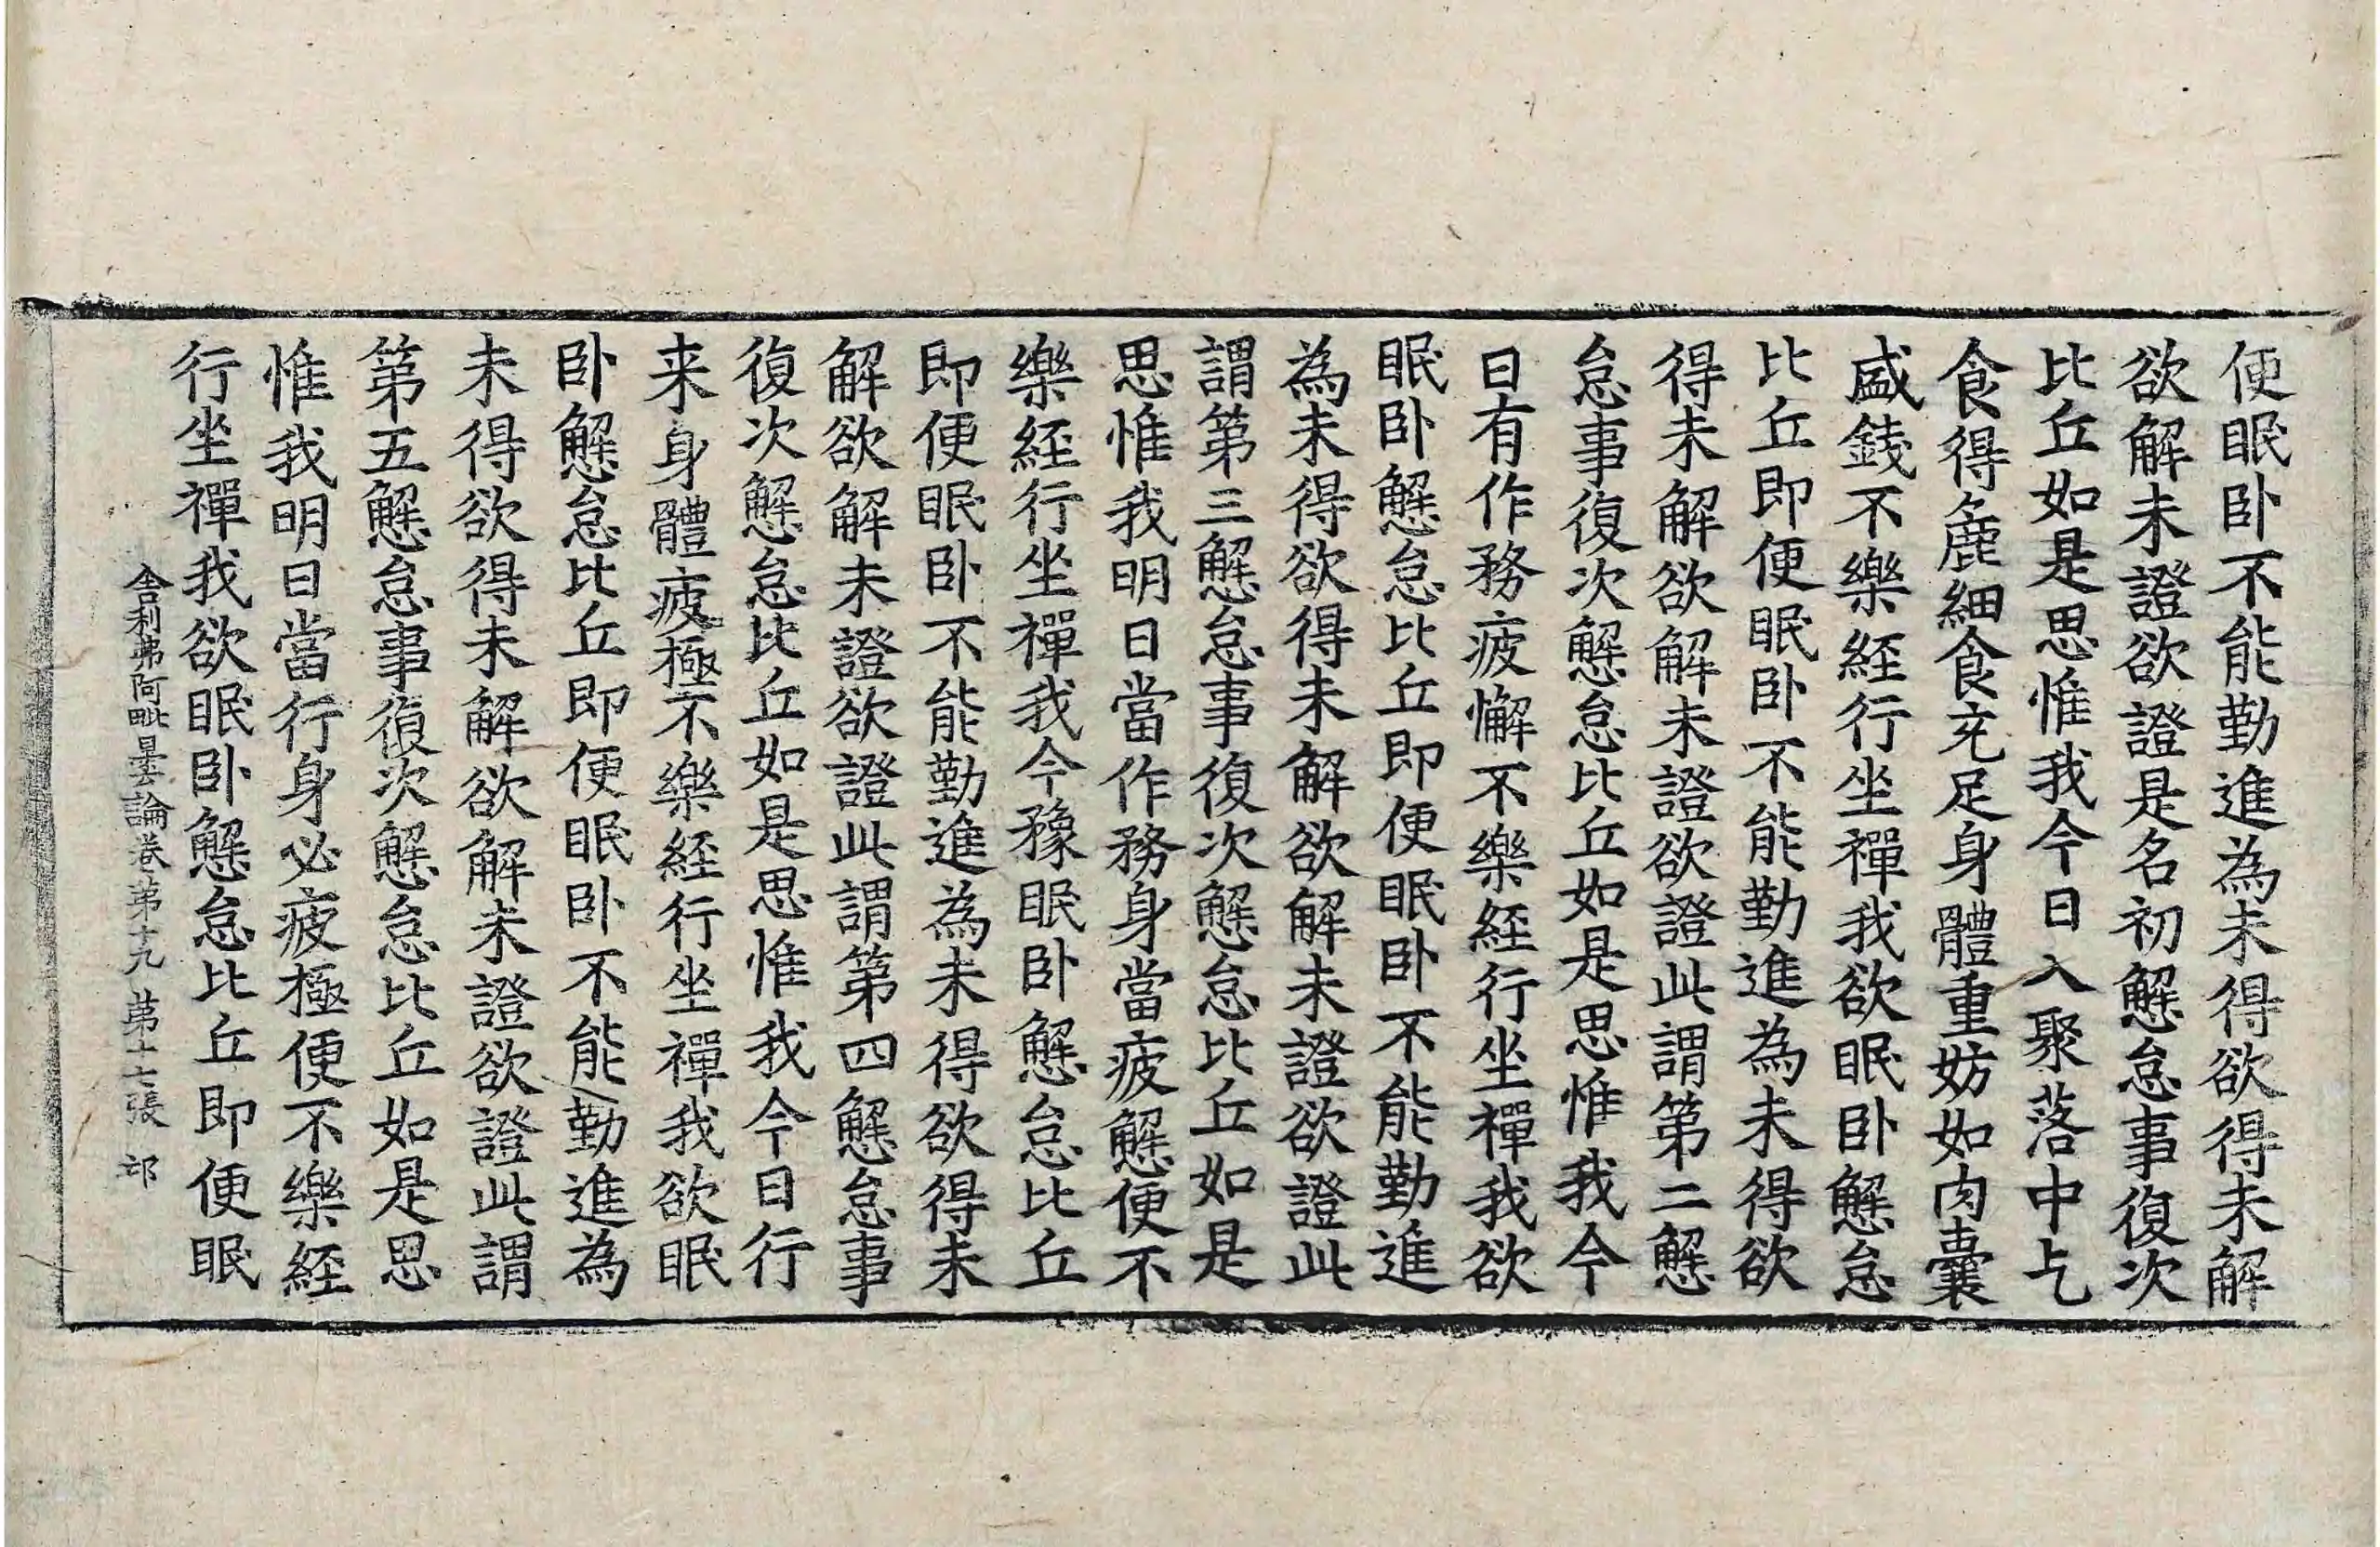 便眠卧不能勤進為未得欲得未解
欲解未證欲證是名初懈怠事復次
比丘如是思惟我今日入聚落中乞
食得麁細食充足身體重妨如肉囊
盛錢不樂経行坐禪我欲眠卧懈怠
比丘即便眠卧不能勤進為未得欲
得未解欲解未證欲證此謂第二懈
怠事復次懈怠比丘如是思惟我今
日有作務疲懈不樂経行坐禪我欲
眠卧懈怠比丘即便眠卧不能勤進
為未得欲得未解欲解未證欲證此
謂第三懈怠事復次懈怠比丘如是
思惟我明日當作務身當疲懈便不
樂経行坐禪我今豫眠卧懈怠比丘
即便眠卧不能勤進為未得欲得未
解欲解未證欲證此謂第四懈怠事
復次懈怠比丘如是思惟我今日行
来身體疲極不樂経行坐禪我欲眠
卧懈怠比丘即便眠卧不能勤進為
未得欲得未解欲解未證欲證此謂
第五懈怠事復次懈怠比丘如是思
惟我明日當行身必疲極便不樂経
行坐禪我欲眠卧懈怠比丘即便眠
舎利弗阿毗曇論卷第十九 第十七張